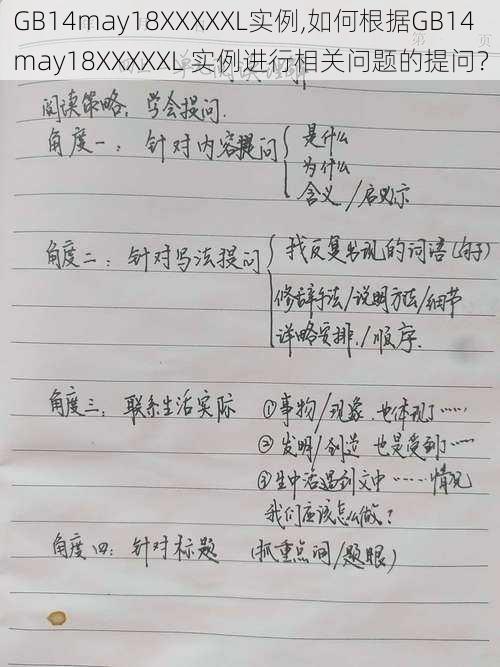 GB14may18XXXXXL实例,如何根据GB14
may18XXXXXL 实例进行相关问题的提问?
阅读策略:学会提问.
角度一:针对内容提问
是什么
为什么
含义/启示
角度二:针对写法提问
找反复出现的词语(句子)
修辞手法/说明方法/细节
详略安排./顺序.
角度三:联系生活实际
①事物/现象.也体现了……
②发明/创造 也是受到……
③生中活遇到文中……情况
我们应该怎么做?
角度四:针对标题 (抓重点词/题眼)